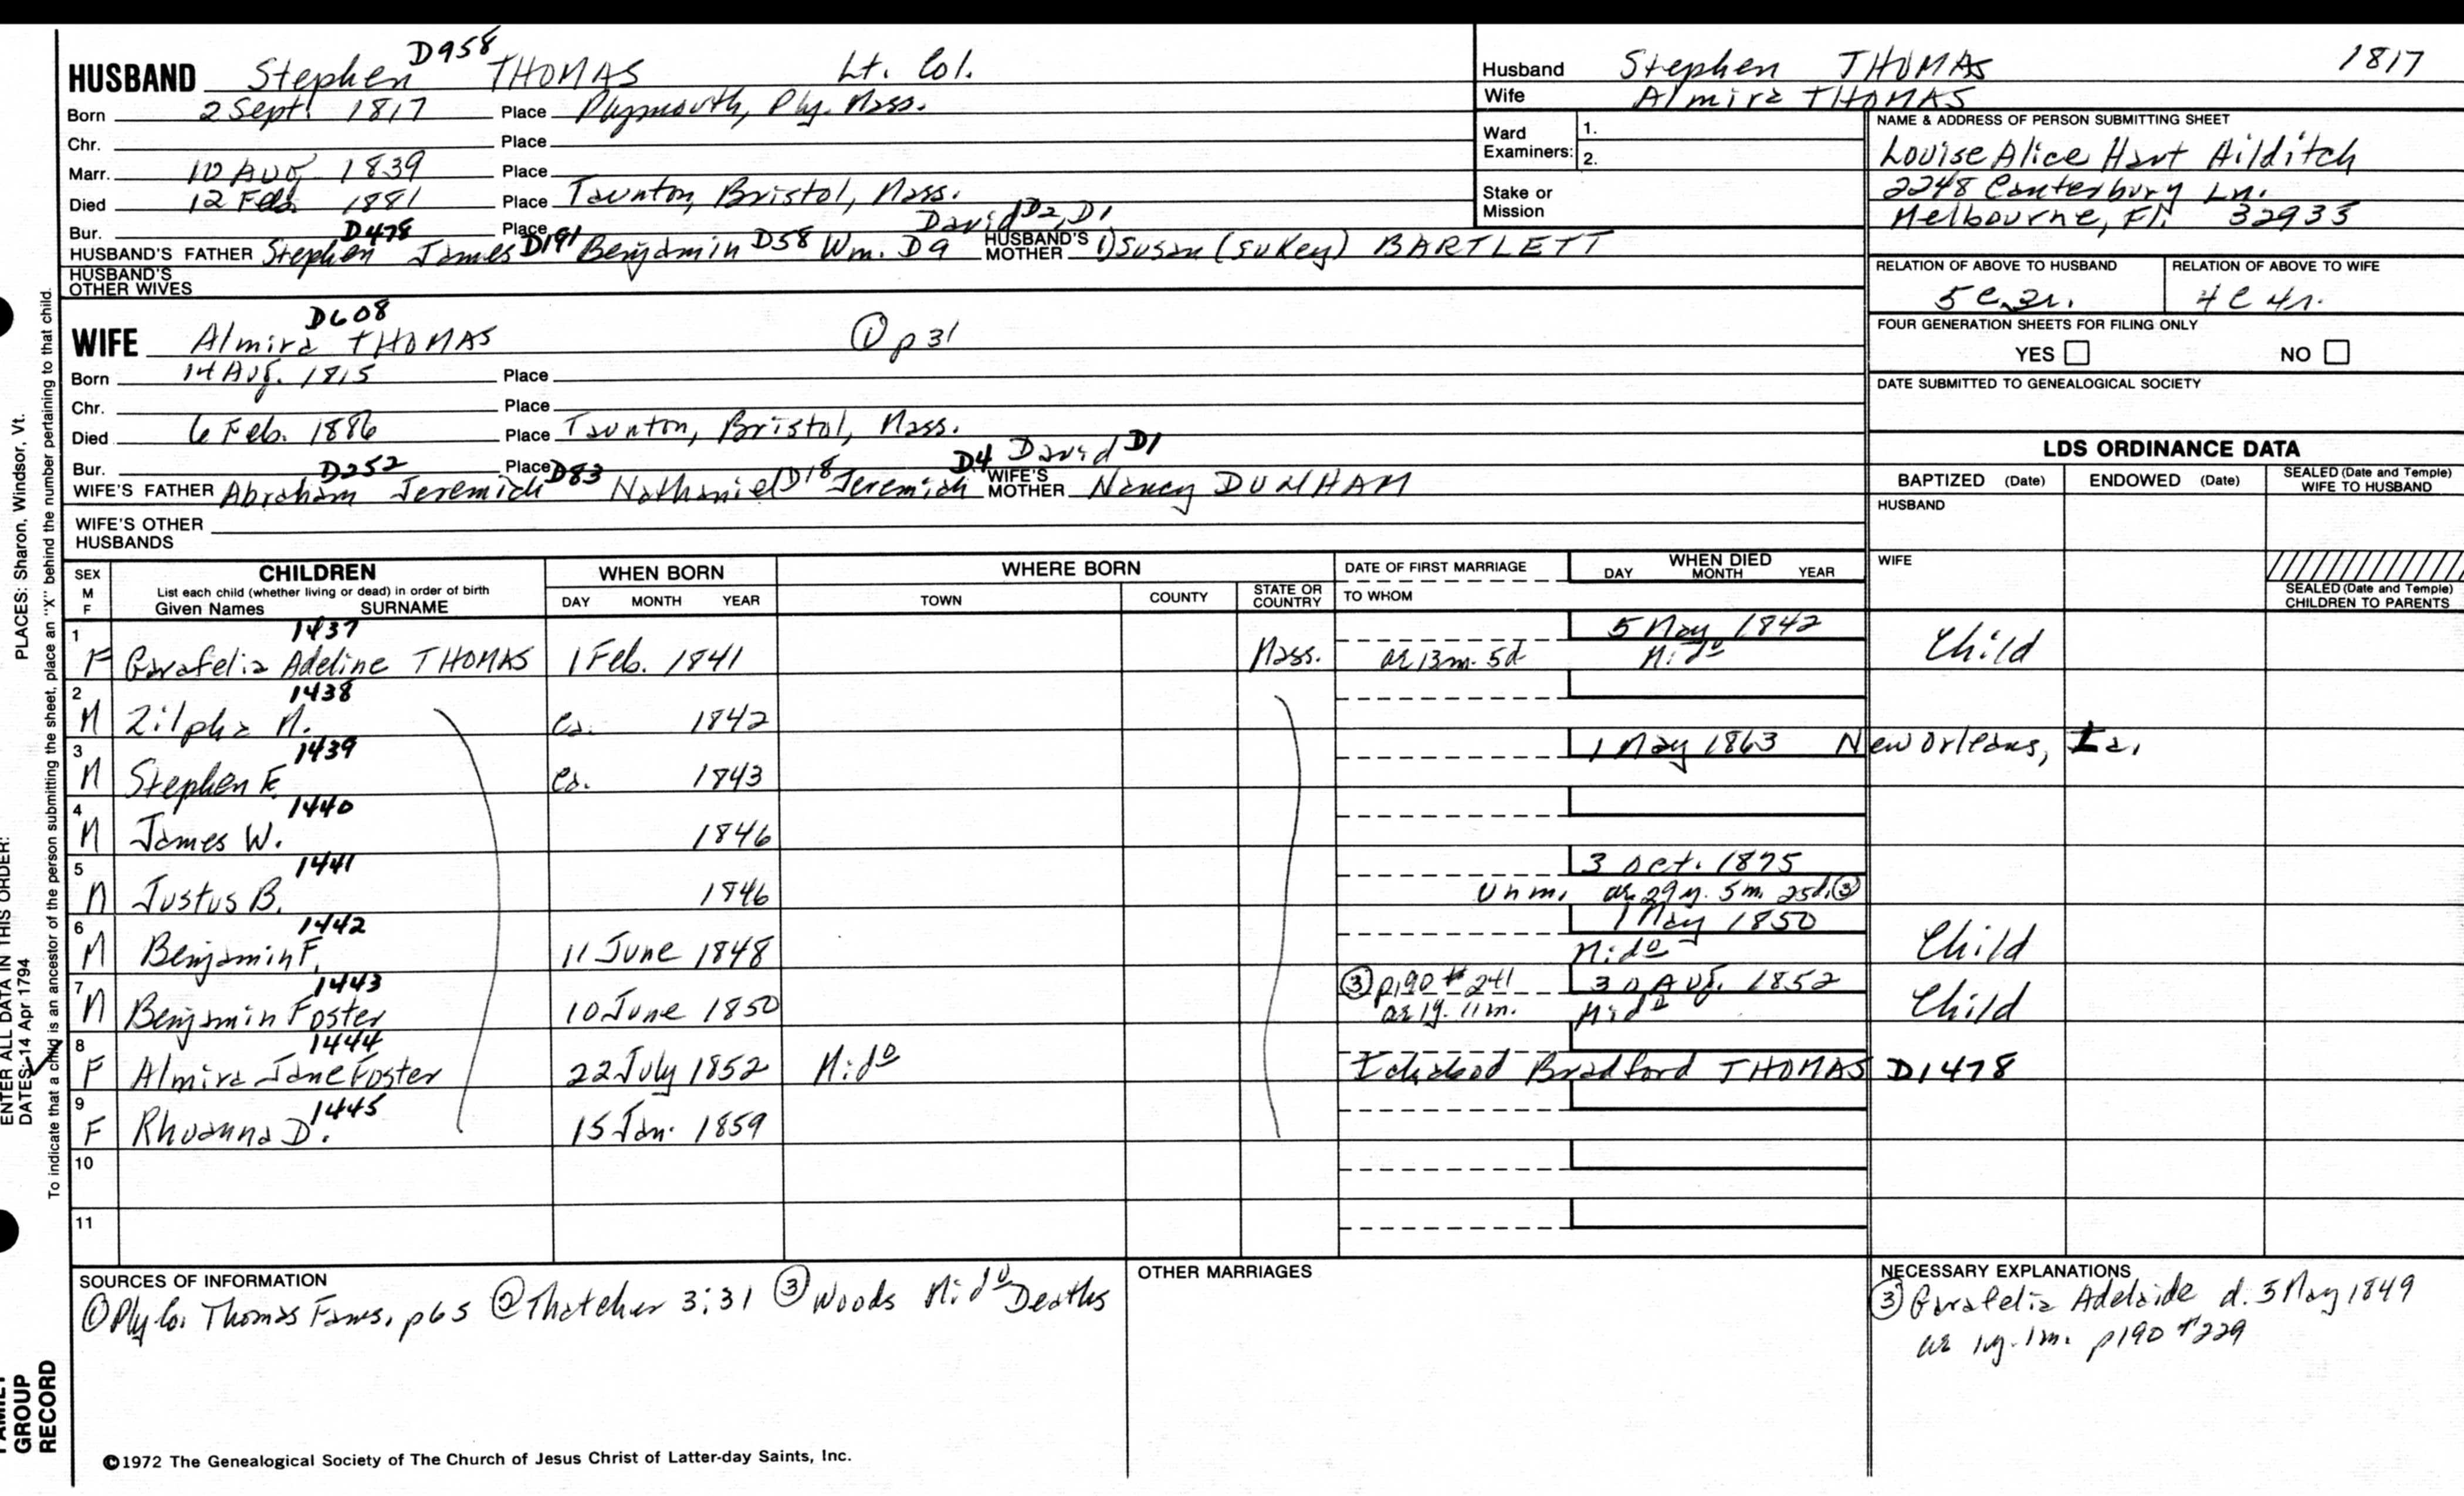 D958
HUSBAND Stephen THOMAS Lt. Col.
Born 2 Sept. 1817 Place Plymouth, Ply. Mass.
Chr. Place
Marr. 10 Aug 1839 Place
Died 12 Feb. 1881 Place Taunton, Bristol, Mass.
Bur. Place
D478 D191 D58 David D2, D1
HUSBAND'S FATHER Stephen James Benjamin Wm. D9 HUSBAND'S MOTHER 1) Susan (Sukey) BARTLETT
HUSBAND'S OTHER WIVES
D608
WIFE Almira THOMAS ① p31
Born 14 Aug. 1815 Place
Chr. Place
Died 6 Feb. 1886 Place Taunton, Bristol, Mass.
Bur. Place
D252 D83 D18 D4 David D1
WIFE'S FATHER Abraham Jeremiah Nathaniel Jeremiah WIFE'S MOTHER Nancy DUNHAM
WIFE'S OTHER HUSBANDS
Husband Stephen THOMAS 1817
Wife Almira THOMAS
Ward Examiners: 1.
2.
Stake or Mission
NAME & ADDRESS OF PERSON SUBMITTING SHEET
Louise Alice Hart Hilditch
2248 Canterbury Ln.
Melbourne, Fl. 32935
RELATION OF ABOVE TO HUSBAND RELATION OF ABOVE TO WIFE
5c 3r. 4c 4r.
FOUR GENERATION SHEETS FOR FILING ONLY
YES NO
DATE SUBMITTED TO GENEALOGICAL SOCIETY
LDS ORDINANCE DATA
BAPTIZED (Date) ENDOWED (Date) SEALED (Date and Temple) WIFE TO HUSBAND
HUSBAND
WIFE
SEALED (Date and Temple) CHILDREN TO PARENTS
SEX M F
CHILDREN
List each child (whether living or dead) in order of birth
Given Names SURNAME
WHEN BORN
DAY MONTH YEAR
WHERE BORN
TOWN COUNTY STATE OR COUNTRY
DATE OF FIRST MARRIAGE
TO WHOM
WHEN DIED
DAY MONTH YEAR
1437 5 May 1842
1 F Garafelia Adeline THOMAS 1 Feb. 1841 Mass. ae 13m. 5d Mido Child
1438
2 M Zilpha M. Ca. 1842
1439 1 May 1863 New Orleans, La.
3 M Stephen F. Ca. 1843
1440
4 M James W. 1846
1441 3 Oct. 1875
5 M Justus B. 1846 Unm. ae 29y. 5m. 25d. ③
1442 1 May 1850
6 M Benjamin F. 11 June 1848 Mido Child
1443 ③ p190 #241 30 Aug. 1852
7 M Benjamin Foster 10 June 1850 ae 1y. 11m. Mido Child
1444
8 F Almira Jane Foster 22 July 1852 Mido Ichabod Bradford THOMAS D1478
1445
9 F Rhuanna D. 15 Jan. 1859
10
11
SOURCES OF INFORMATION
① Ply Co. Thomas Fams. p65 ② Thatcher 3:31 ③ Woods Mido Deaths
OTHER MARRIAGES
NECESSARY EXPLANATIONS
③ Garafelia Adelaide d. 5 May 1849
ae 1y. 1m. p190 #229
©1972 The Genealogical Society of The Church of Jesus Christ of Latter-day Saints, Inc.
ENTER ALL DATA IN THIS ORDER:
DATES: 14 Apr 1794 PLACES: Sharon, Windsor, Vt.
To indicate that a child is an ancestor of the person submitting the sheet, place an "X" behind the number pertaining to that child.
FAMILY
GROUP
RECORD